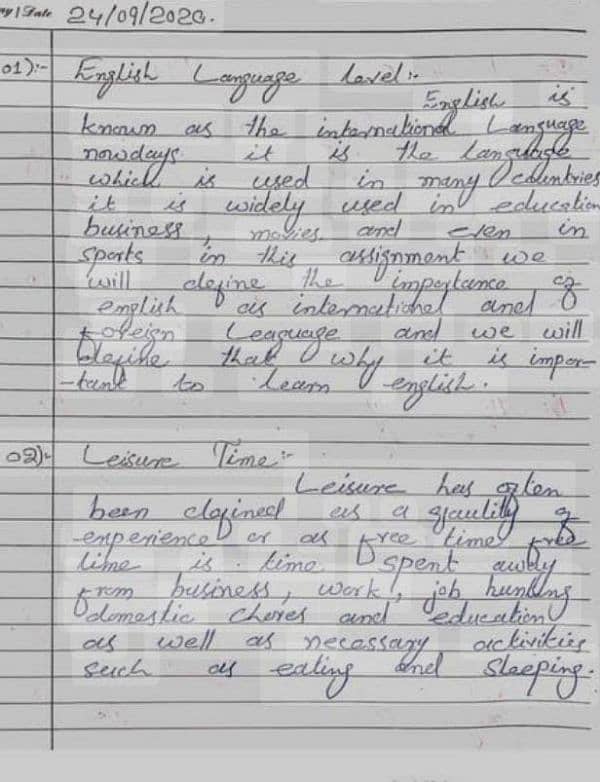 Date 24/09/2020.
01):- English Language level:-
English is
known as the international Language
nowdays. it is the language
which is used in many countries
it is widely used in education
business, movies. and even in
sports in this assignment we
will define the importance of
english as international and
foreign Leaguage and we will
define that why it is impor-
-tant to learn english.
02):- Leisure Time:-
Leisure has often
been defined as a quality of
experience or as free time free
time is . time spent away
from business, work, job hunting
domestic chores and education
as well as necessary activities
such as eating and sleeping.